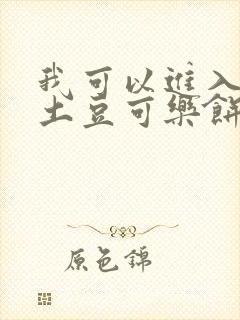 我可以進入
土豆可樂餅
原色錦